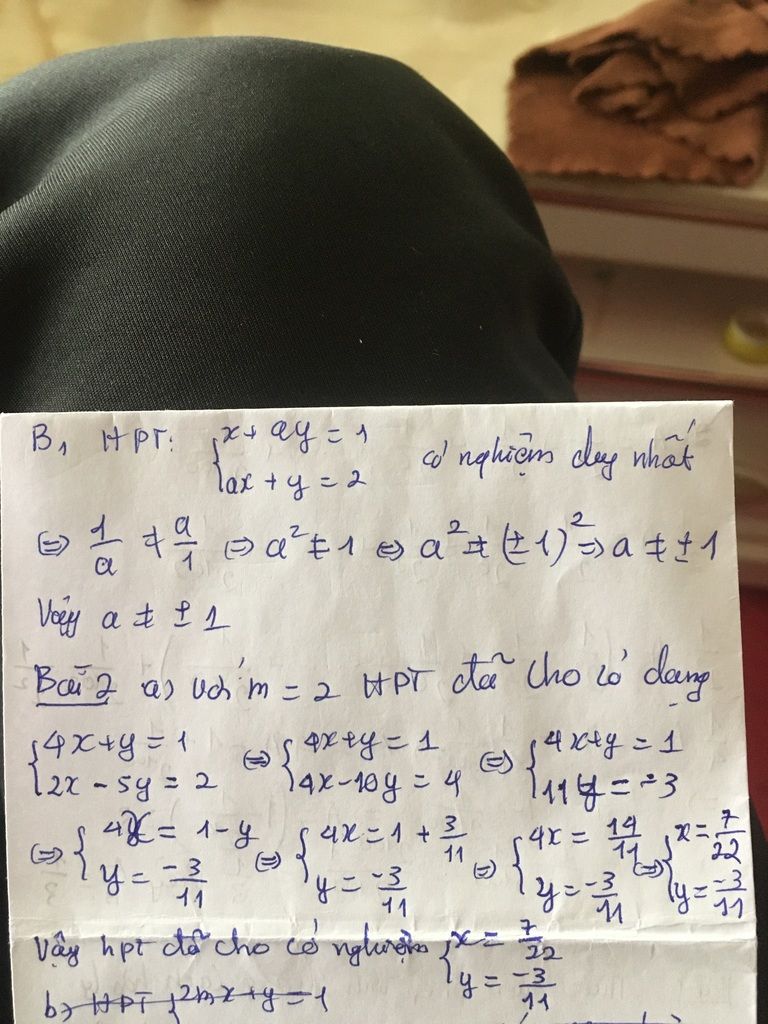 B1 HPT: { x + ay = 1 ; ax + y = 2 có nghiệm duy nhất
⇔ 1/a ≠ a/1 ⇔ a² ≠ 1 ⇔ a² ≠ (±1)² ⇒ a ≠ ±1
Vậy a ≠ ±1
Bài 2 a) với m = 2 HPT đã cho có dạng
{ 4x + y = 1 ; 2x - 5y = 2 ⇔ { 4x + y = 1 ; 4x - 10y = 4 ⇔ { 4x + y = 1 ; 11y = -3
⇔ { 4x = 1 - y ; y = -3/11 ⇔ { 4x = 1 + 3/11 ; y = -3/11 ⇔ { 4x = 14/11 ; y = -3/11 ⇔ { x = 7/22 ; y = -3/11
Vậy hpt đã cho có nghiệm { x = 7/22 ; y = -3/11
b) HPT { 2mx + y = 1